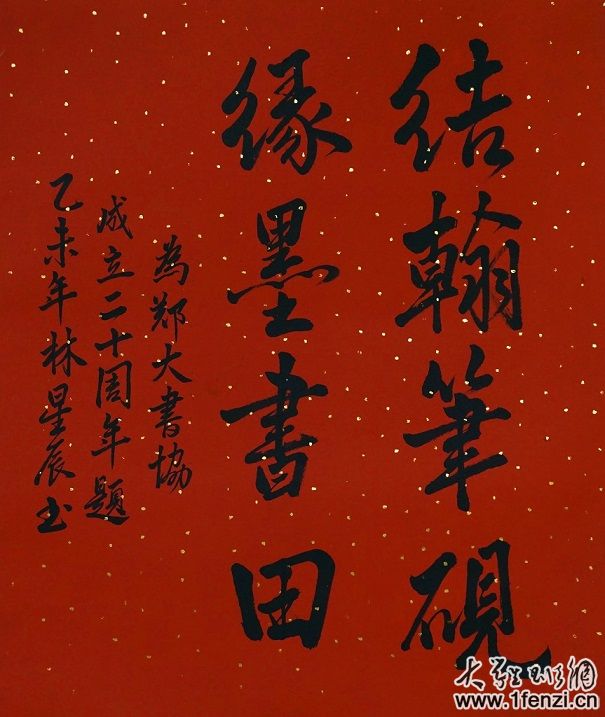 結翰筆硯
緣墨書田
為郑大書協
成立二十周年題
乙未年林星辰书
www.1fenzi.cn